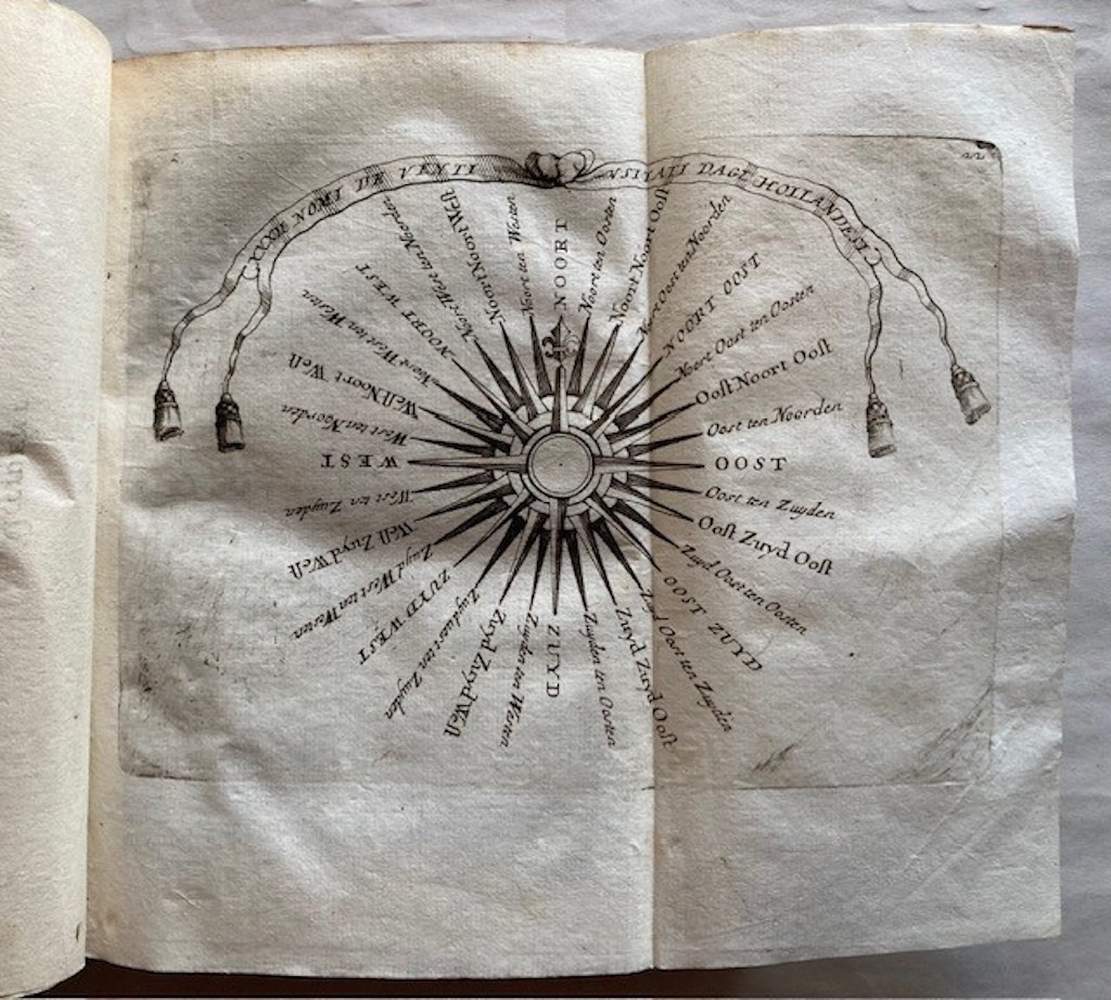 XXXII NOMI DE VENTI
VSITATI DAGL' HOLLANDESI
22
NOORT
Noort ten Oosten
Noort Noort Ooſt
Noort Oost ten Noorden
NOORT OOST
Noort Oost ten Oosten
Ooſt Noort Ooſt
Oost ten Noorden
OOST
Oost ten Zuyden
Ooſt Zuyd Ooſt
Zuyd Oost ten Oosten
OOST ZUYD
Zuyd Oost ten Zuyden
Zuyd Zuyd Ooſt
Zuyden ten Oosten
ZUYD
Zuyden ten Westen
Zuyd Zuyd Weſt
Zuydwest ten Zuyden
ZUYD WEST
Zuyd West ten Westen
Weſt Zuyd Weſt
West ten Zuyden
WEST
West ten Noorden
Weſt Noort Weſt
Noort West ten Westen
NOORT WEST
Noort West ten Noorden
Noort Noort Weſt
Noort ten Westen